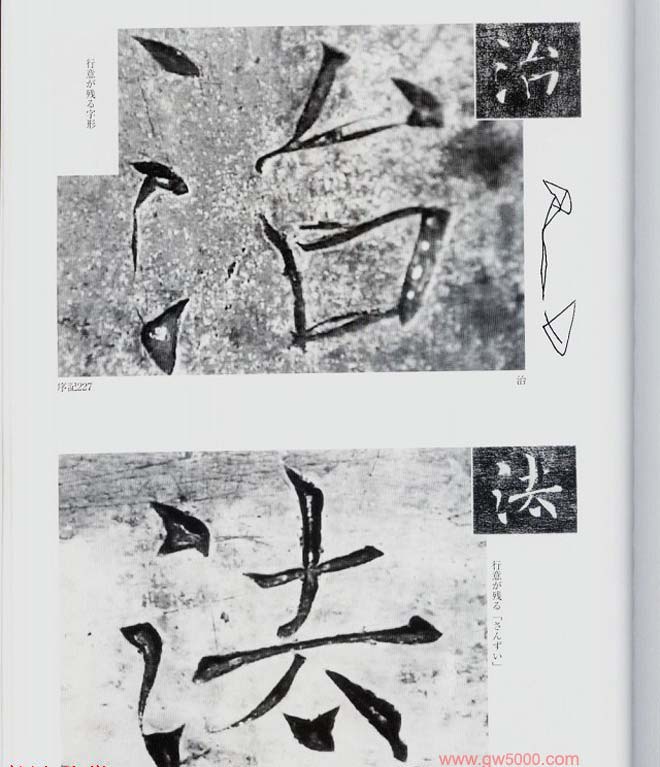 行意が残る字形
治
治
序記227
治
法
法
行意が残る「さんずい」
www.gw5000.com